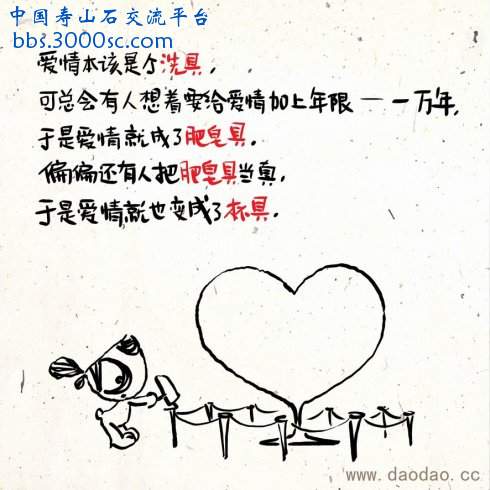 中国寿山石交流平台
bbs.3000sc.com
爱情本该是个洗具，
可总会有人想着要给爱情加上年限——一万年，
于是爱情就成了肥皂具。
偏偏还有人把肥皂具当真，
于是爱情就也变成了杯具。
www.daodao.cc